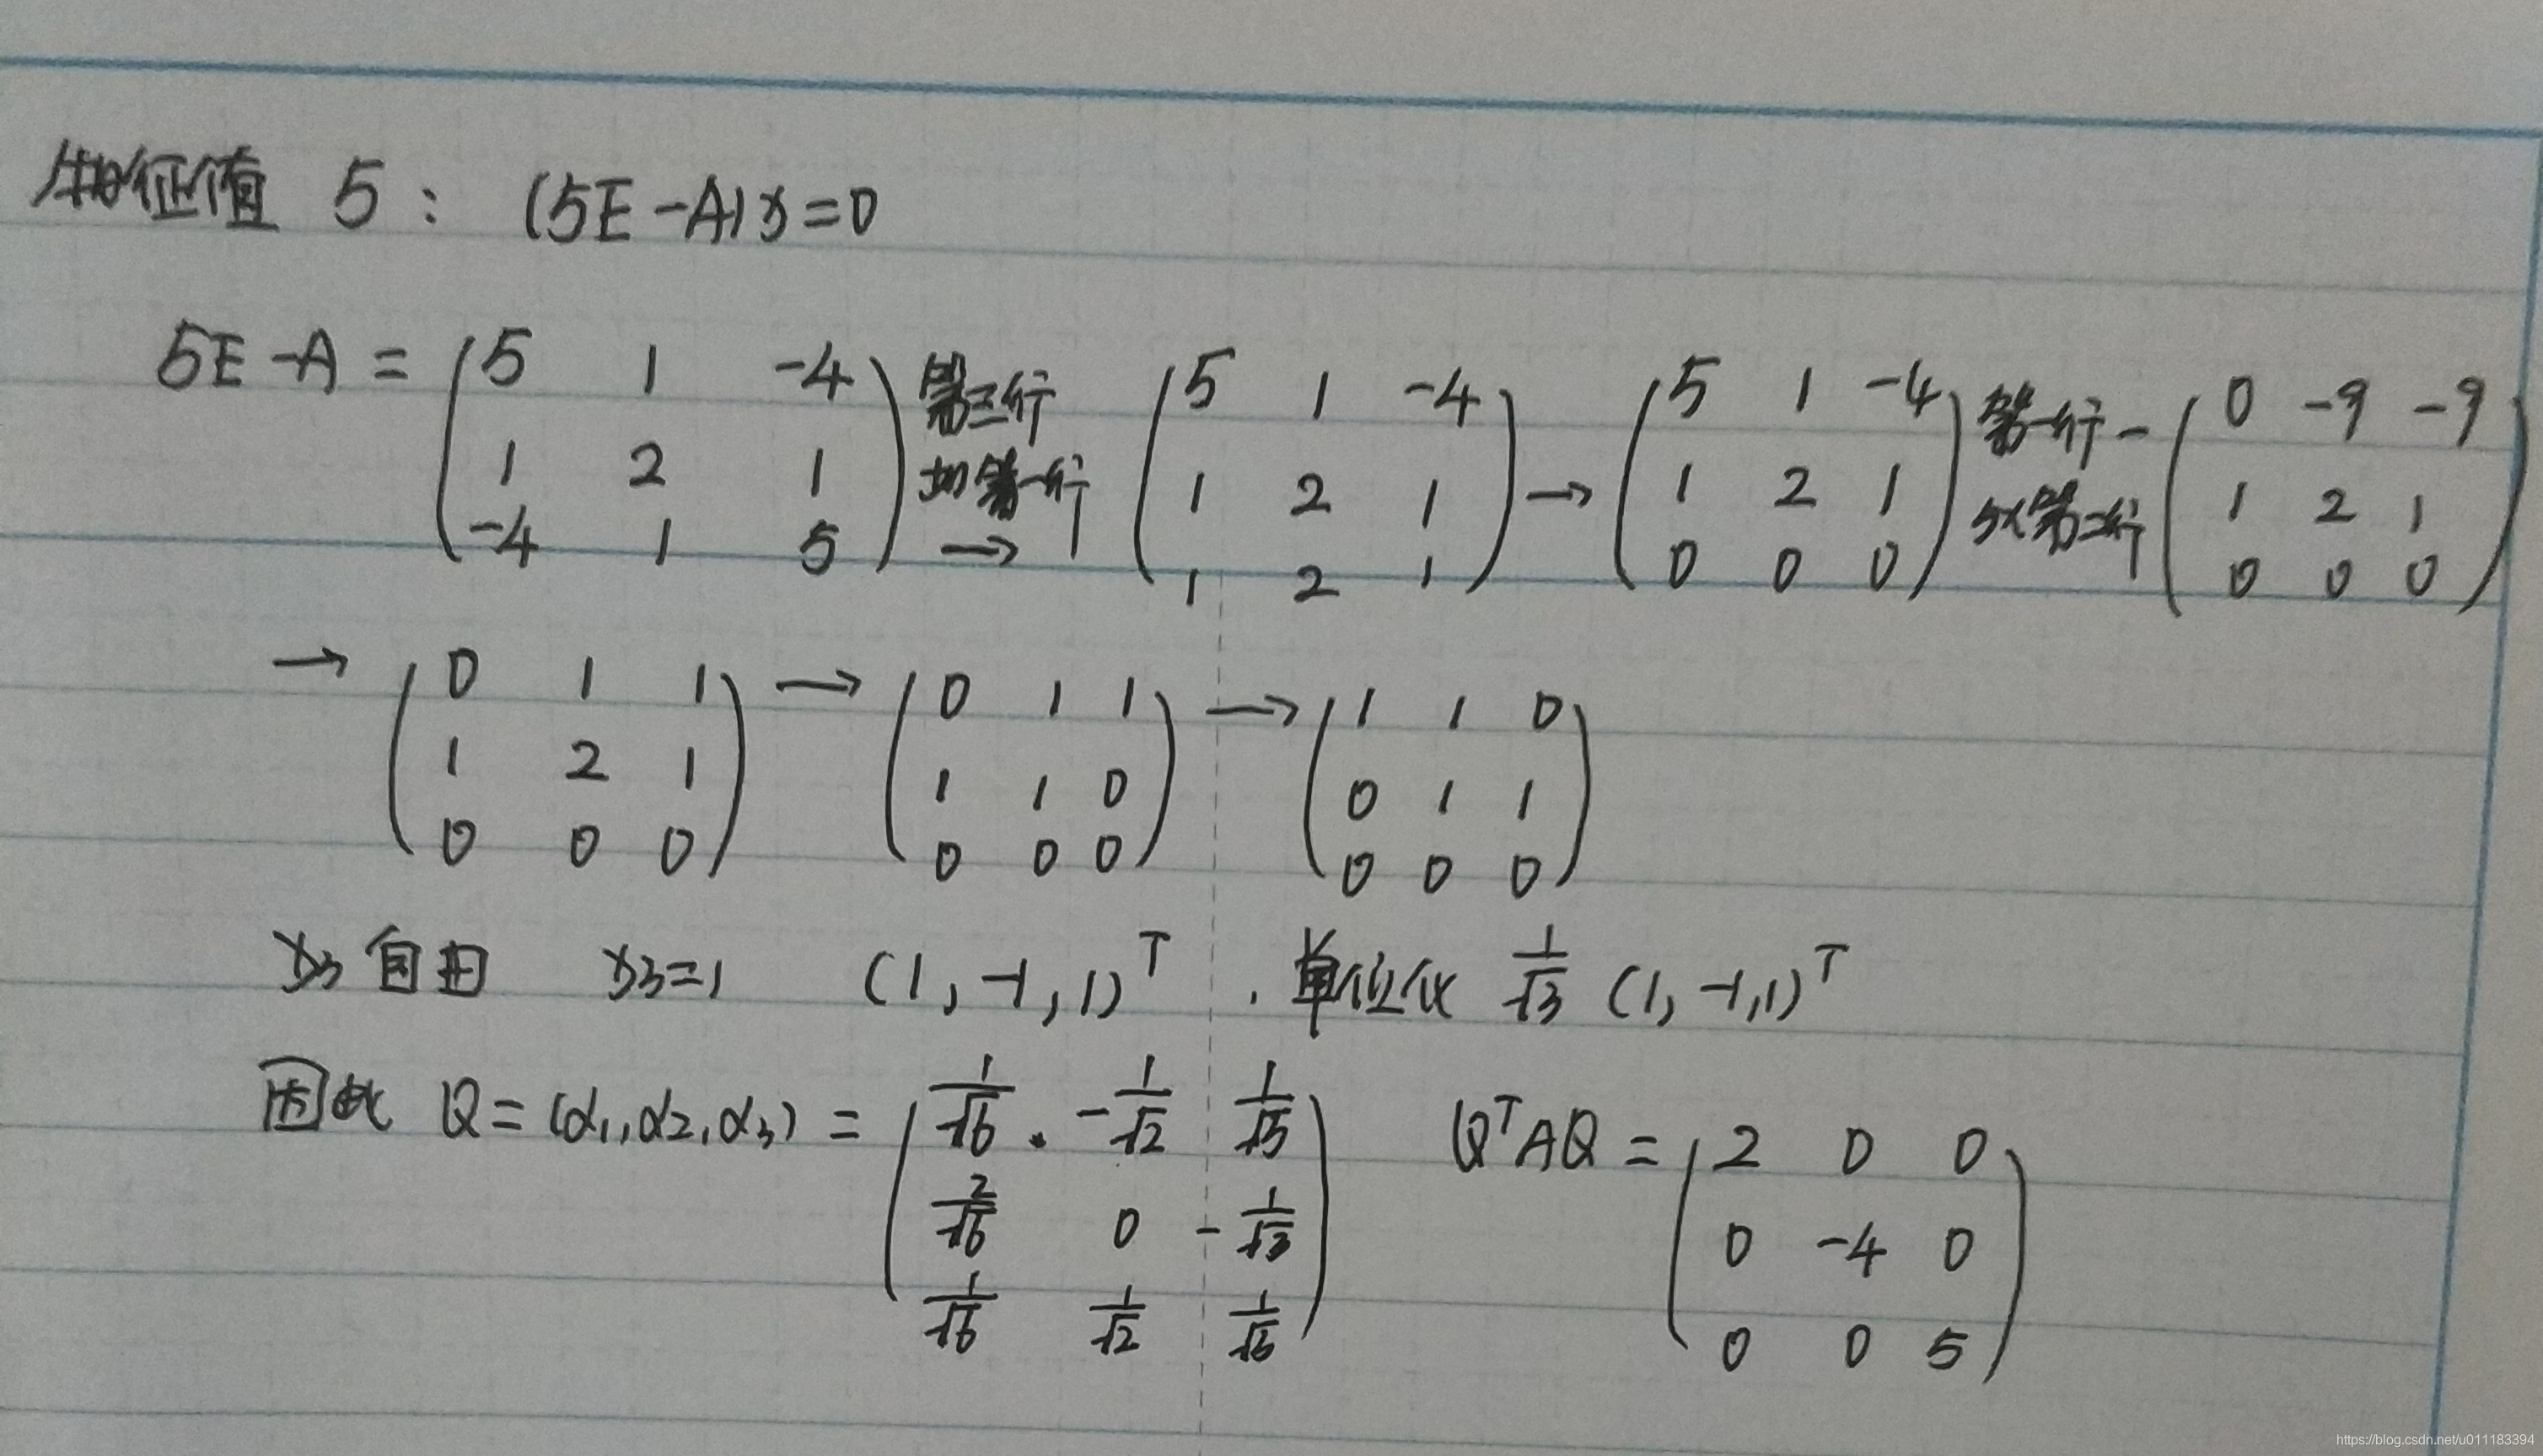 特征值 5: (5E-A)x=0
5E-A = (5 1 -4; 1 2 1; -4 1 5) 第三行加第一行 → (5 1 -4; 1 2 1; 1 2 1) → (5 1 -4; 1 2 1; 0 0 0) 第一行-5×第二行 (0 -9 -9; 1 2 1; 0 0 0)
→ (0 1 1; 1 2 1; 0 0 0) → (0 1 1; 1 1 0; 0 0 0) → (1 1 0; 0 1 1; 0 0 0)
x3自由 x3=1 (1,-1,1)^T . 单位化 1/√3 (1,-1,1)^T
因此 Q=(α1,α2,α3) = (1/√6 -1/√2 1/√3; 2/√6 0 -1/√3; 1/√6 1/√2 1/√3) Q^TAQ = (2 0 0; 0 -4 0; 0 0 5)
https://blog.csdn.net/u011183394